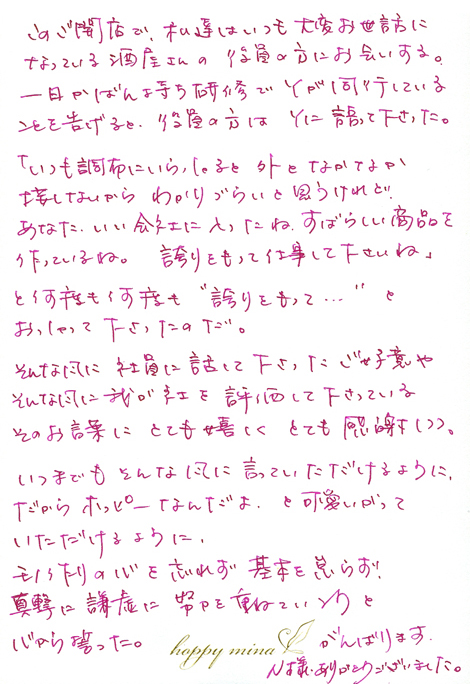 このご開店で、私達はいつも大変お世話に
なっている酒屋さんの役員の方にお会いする。
一日かばん持ち研修でYが同行している
ことを告げると、役員の方はYに語って下さった。
「いつも調布にいらっしゃると外となかなか
接しないから わかりづらいと思うけれど、
あなた、いい会社に入ったね。すばらしい商品を
作っているね。 誇りをもって仕事して下さいね」
と何度も何度も “誇りをもって…” と
おっしゃって下さったのだ。
そんな風に 社員に話して下さった ご好意や
そんな風に我が社を評価して下さっている
そのお言葉に とても嬉しく とても感謝しつつ。
いつまでも そんな風に言っていただけるように、
だから ホッピーなんだよ、と可愛いがって
いただけるように、
モノづくりの心を忘れず 基本を怠らず、
真摯に謙虚に 努力を重ねていこうと
心から誓った。 hoppy mina がんばります。
N様、ありがとうございました。